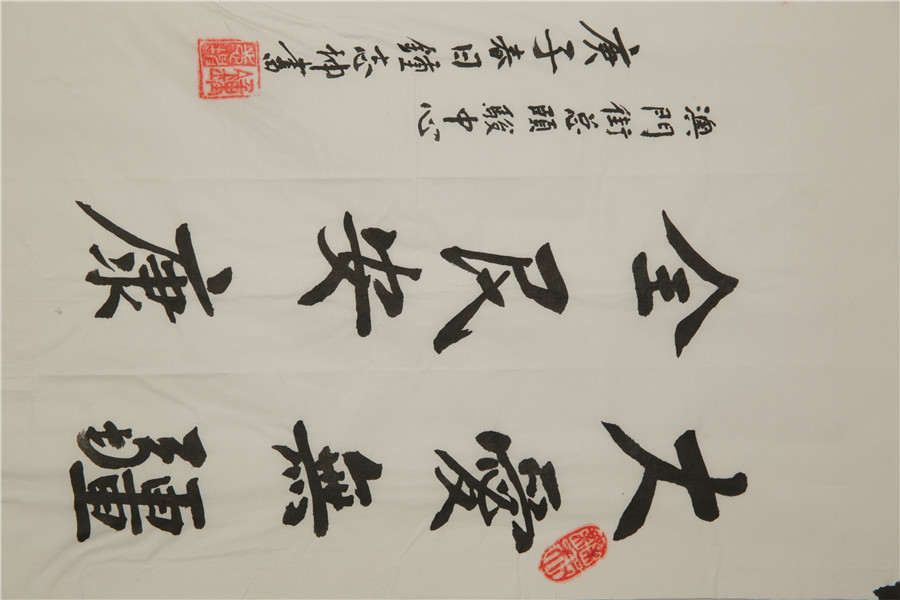 大愛無疆
全民安康
澳門街总頤駿中心
庚子春日鍾志坤書